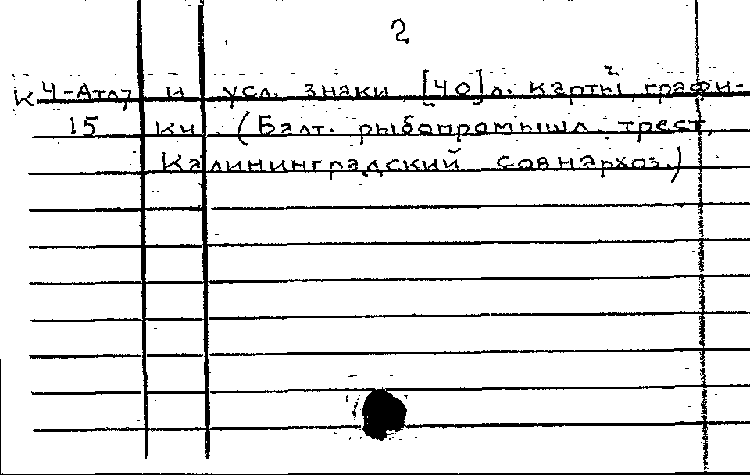 2
К 4-Атл7 и усл. знаки [40]л. карты, графи-
15 кн. (Балт. рыбопромышл. трест,
Калининградский совнархоз.)